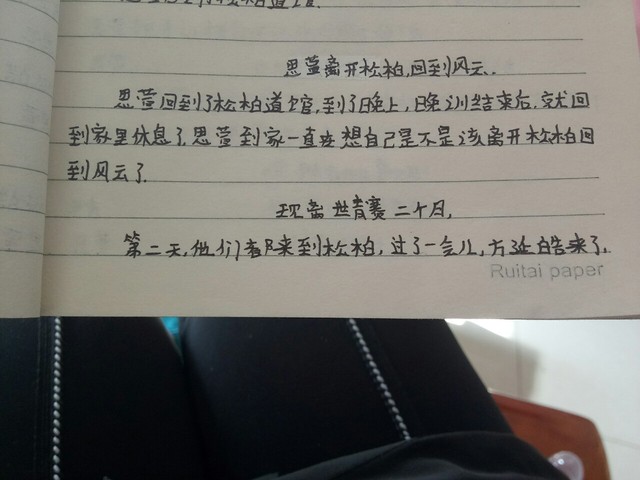 思萱离开松柏,回到风云..
思萱回到了松柏道馆,到了晚上,晚训结束后,就回
到家里休息了,思萱到家一直在想自己是不是该离开松柏回
到风云了.
现离世青赛二个月,
第二天,他们都来到松柏,过了一会儿,方延皓来了,
Ruitai paper